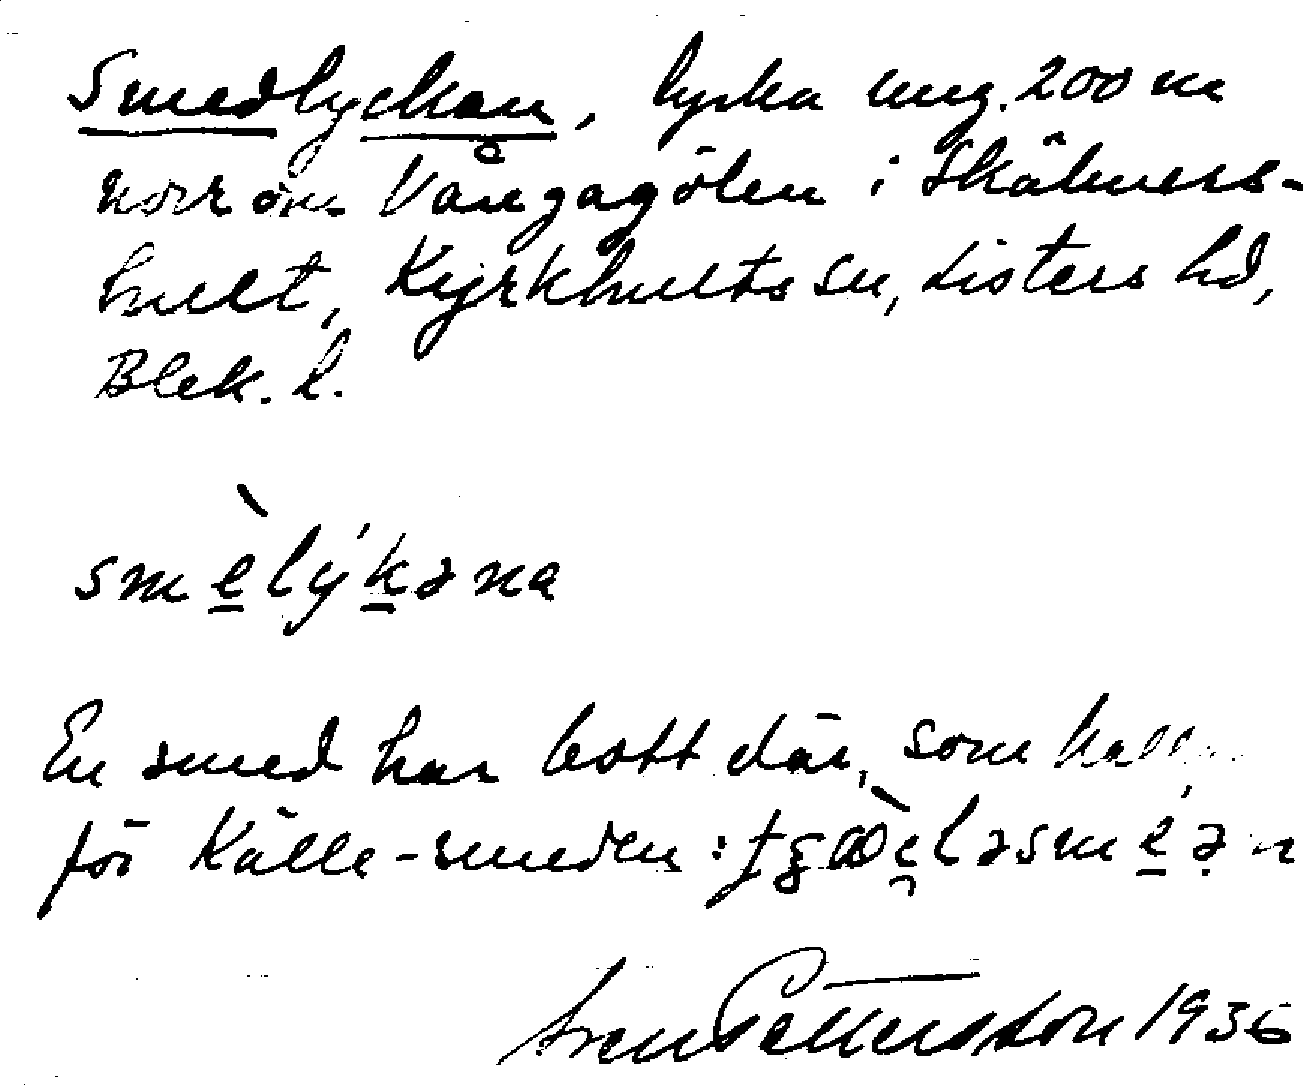 Smedlyckan, lycka ung. 200 m
norr om Vångagölen i Skälmers-
hult, Kyrkhults sn, Listers hd,
Blek. l.
smèlýkəna
En smed har bott där, som kall
för Källe-smeden:
Sven Pettersson 1936